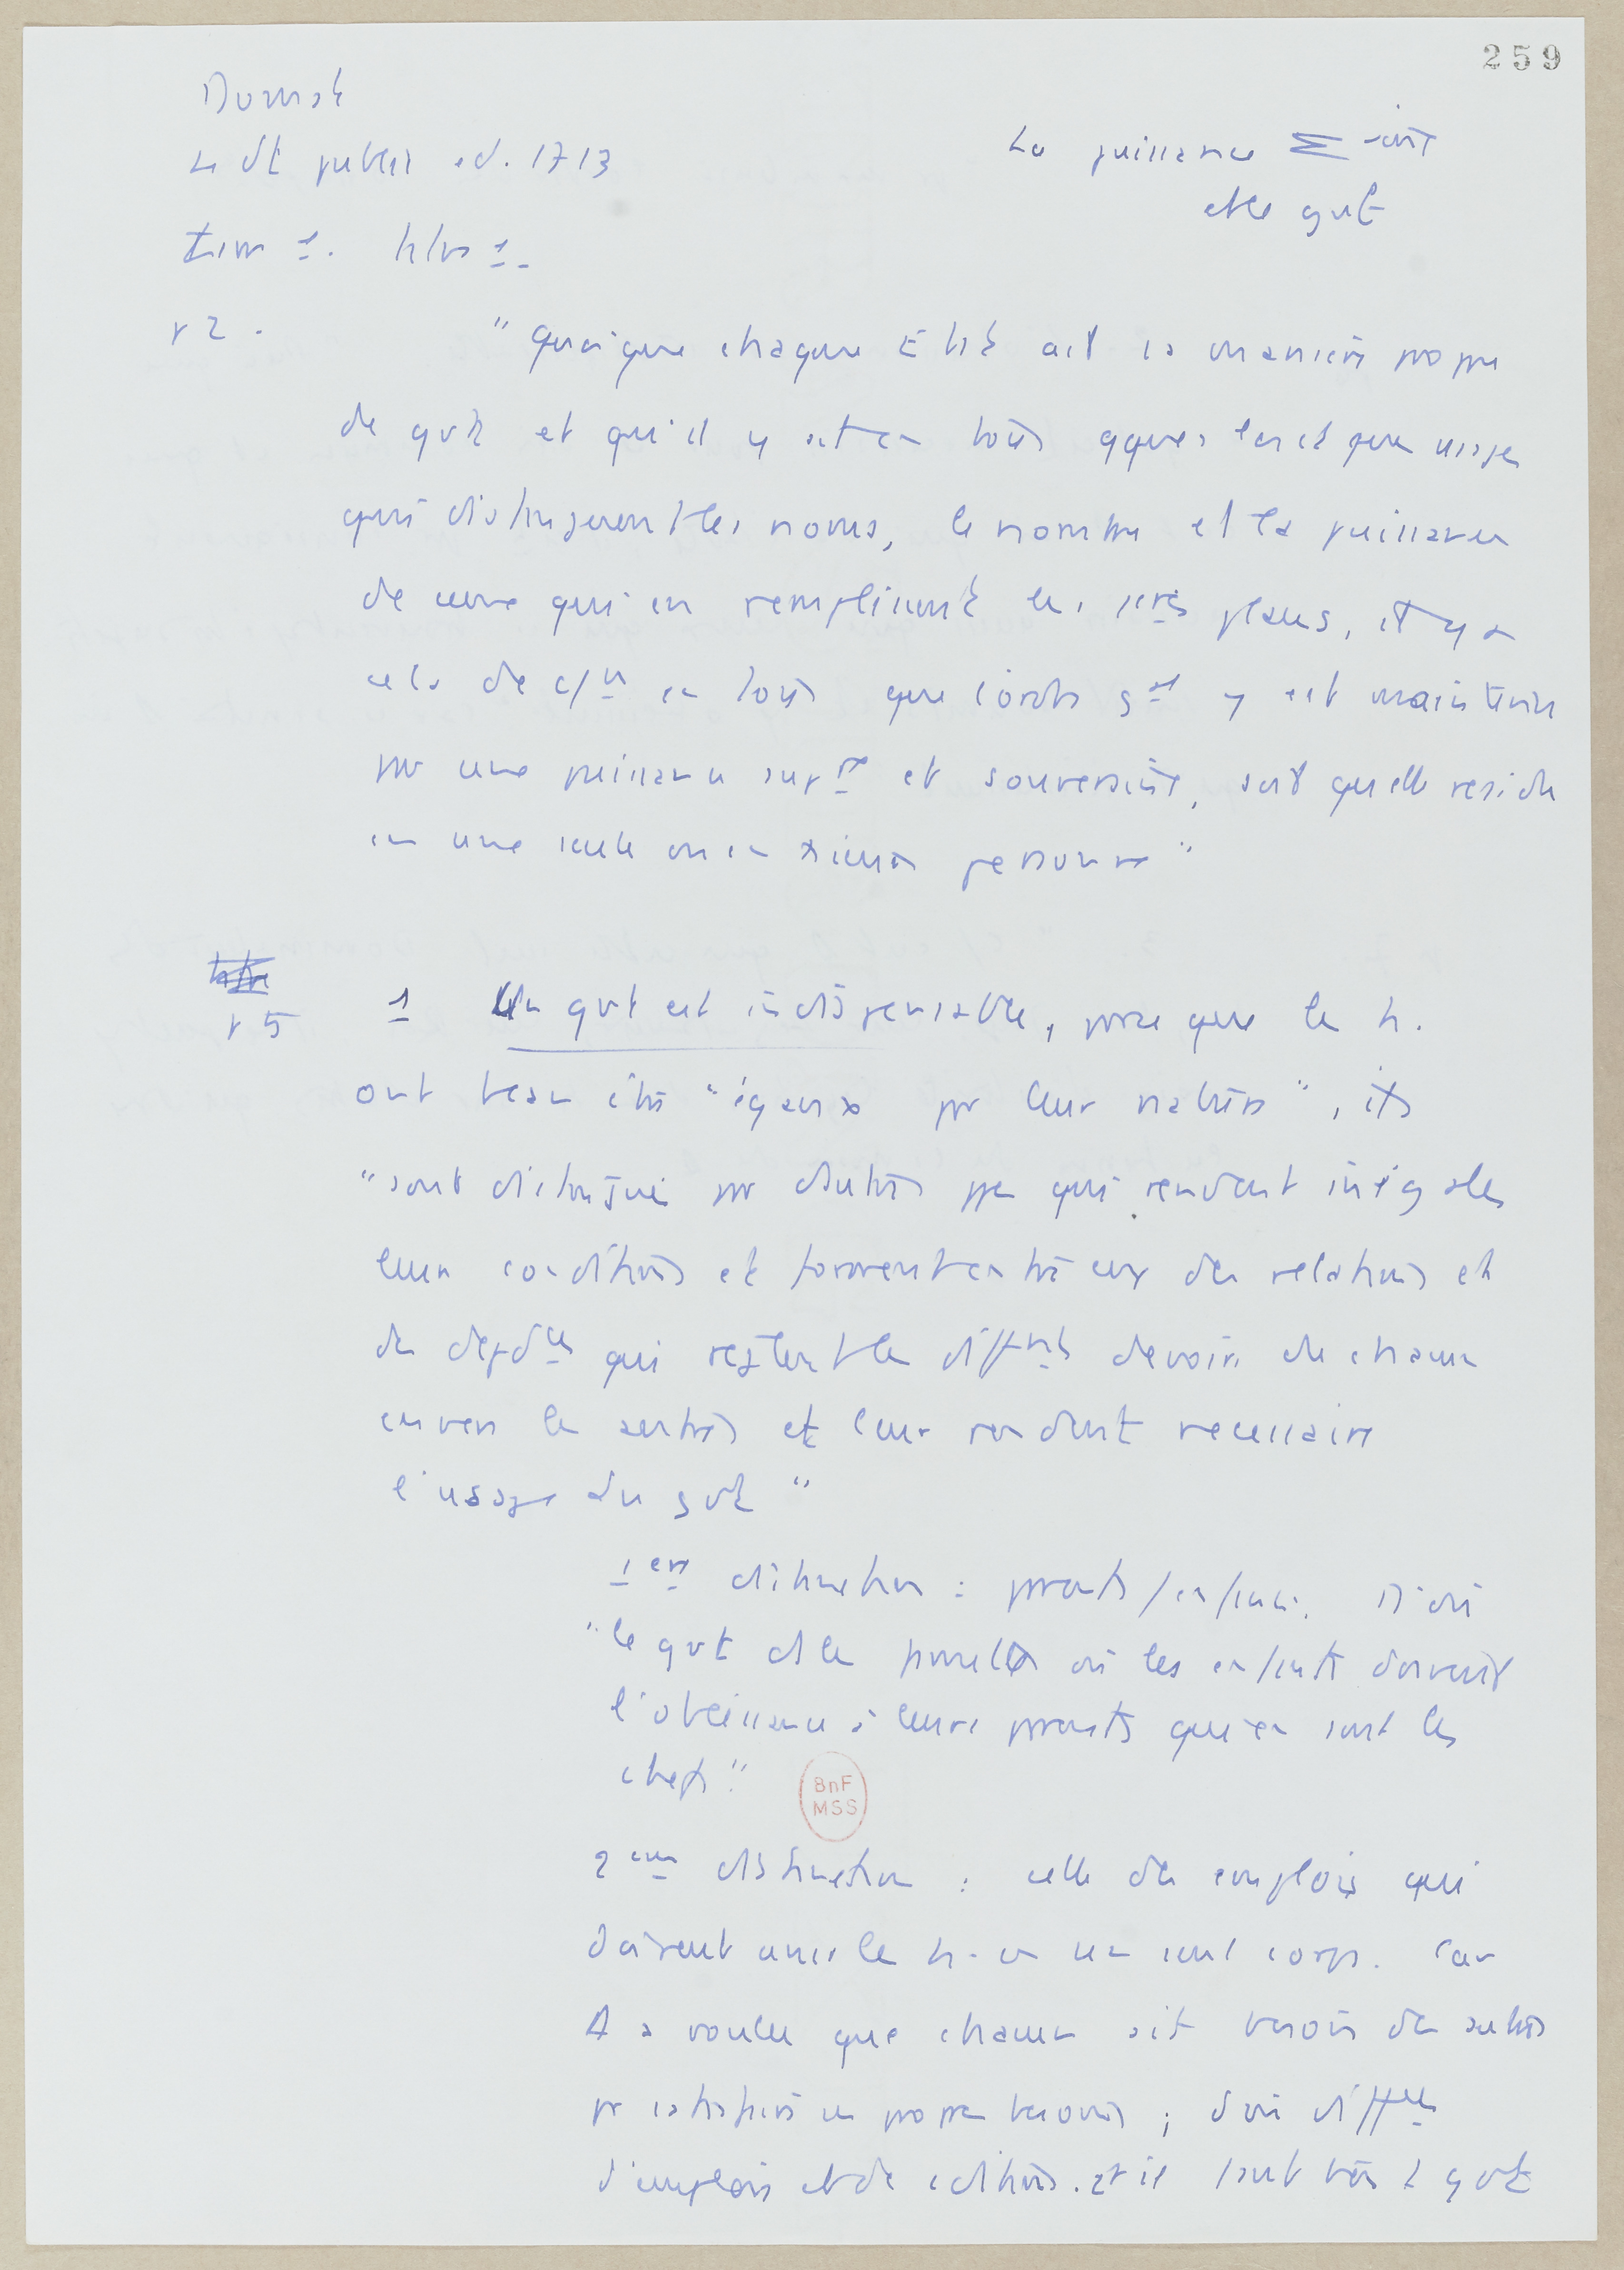 259
Domat
Le dt public ed. 1713
La puissance
et le gvt
tom 1. titre 1.
p 2.
" Quoique chaque Etat ait sa manière propre
de gvt et qu'il y ait en tous qques lois et que usage
qui distinguent les noms, le nombre et la puissance
de ceux qui en remplissent les 1res places, il y a
cela de c/un en tous que l'ordre gal y est maintenu
par une puissance supre et souveraine, soit qu'elle reside
en une seule ou en personnes "
p 5
1 Un gvt est indispensable, parce que les h.
ont beau être "égaux par leur nature", ils
"sont distingués par d'autres ppes qui rendent inégales
leurs conditions et forment entre eux des relations et
des depdces qui reglent les diffrents devoirs de chacun
envers les autres et leur rendent necessaire
l'usage du gvt "
1ere distinction : parents/enfants. D'où
"le gvt des familles où les enfants doivent
l'obeissance à leurs parents qui en sont les
chefs".
BnF
MSS
2eme distinction : celle des emplois qui
doivent unir les h. en un seul corps. Car
a voulu que chacun ait besoin des autres
pr satisfaire ses propres besoins ; d'où diffces
d'emplois et de cditions. et il faut un gvt